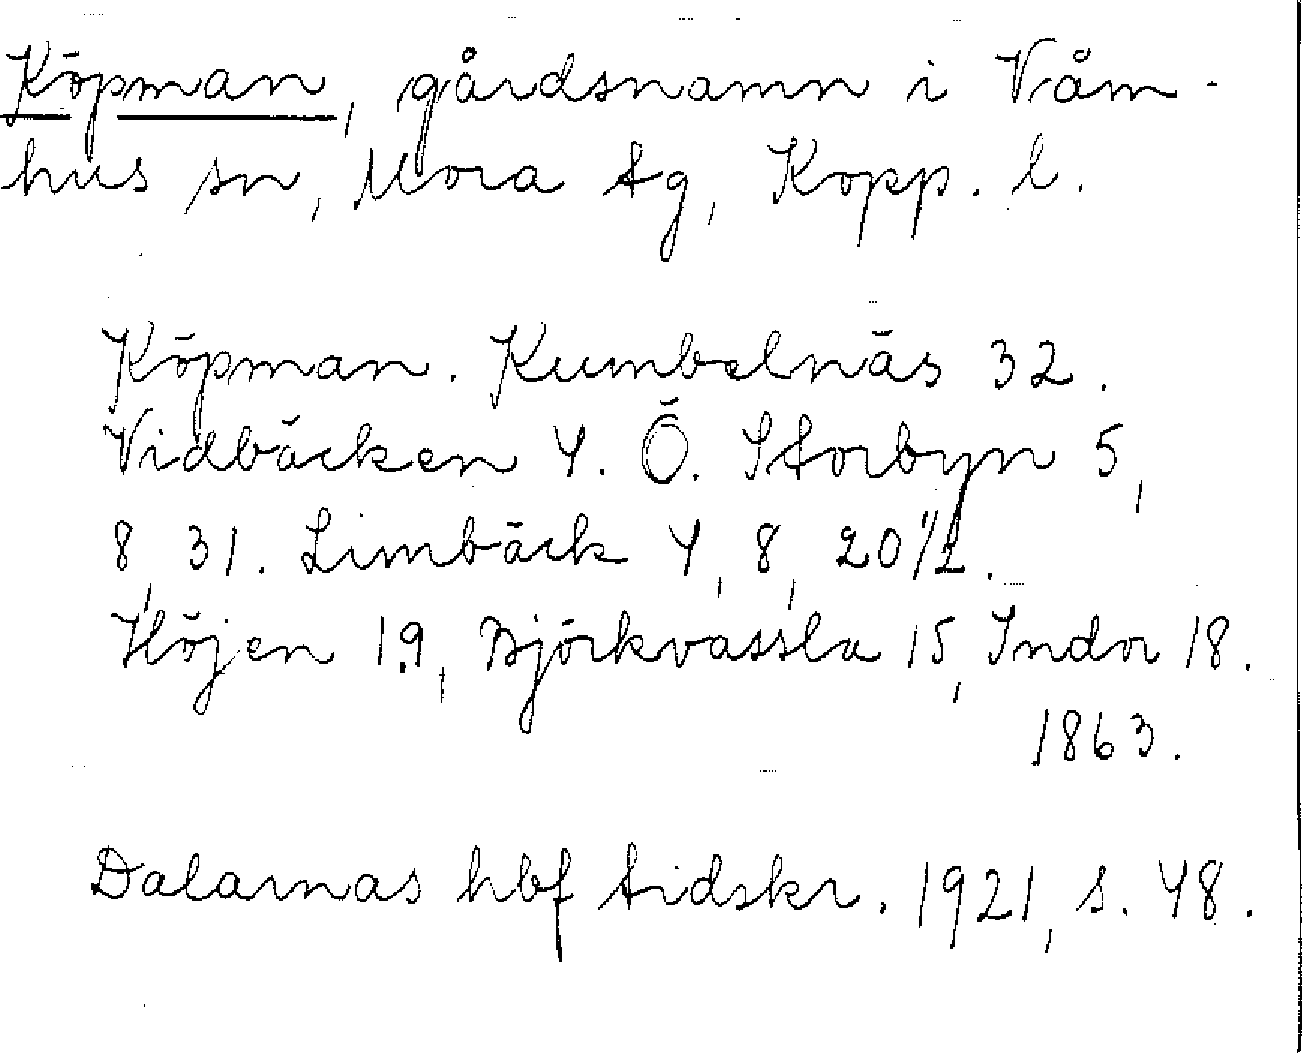 Köpman, gårdsnamn i Våm-
hus sn, Mora tg, Kopp. l.
Köpman. Kumbelnäs 32.
Vidbäcken 4. Ö. Storbyn 5,
8, 31. Limbäck 4, 8, 20 1/2.
Höjen 19, Björkvassla 15, Indor 18.
1863.
Dalarnas hbf tidskr. 1921, s. 48.